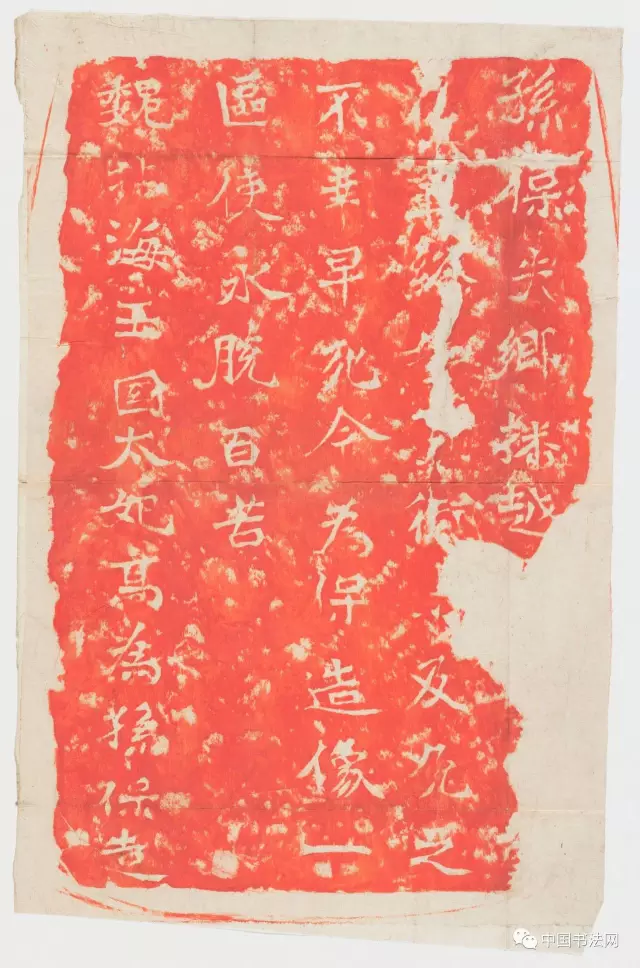 孫保失鄉播越
終 及 之
不幸早死今為保造像一
區使永脫百苦
魏北海王國太妃高為孫保造
中国书法网